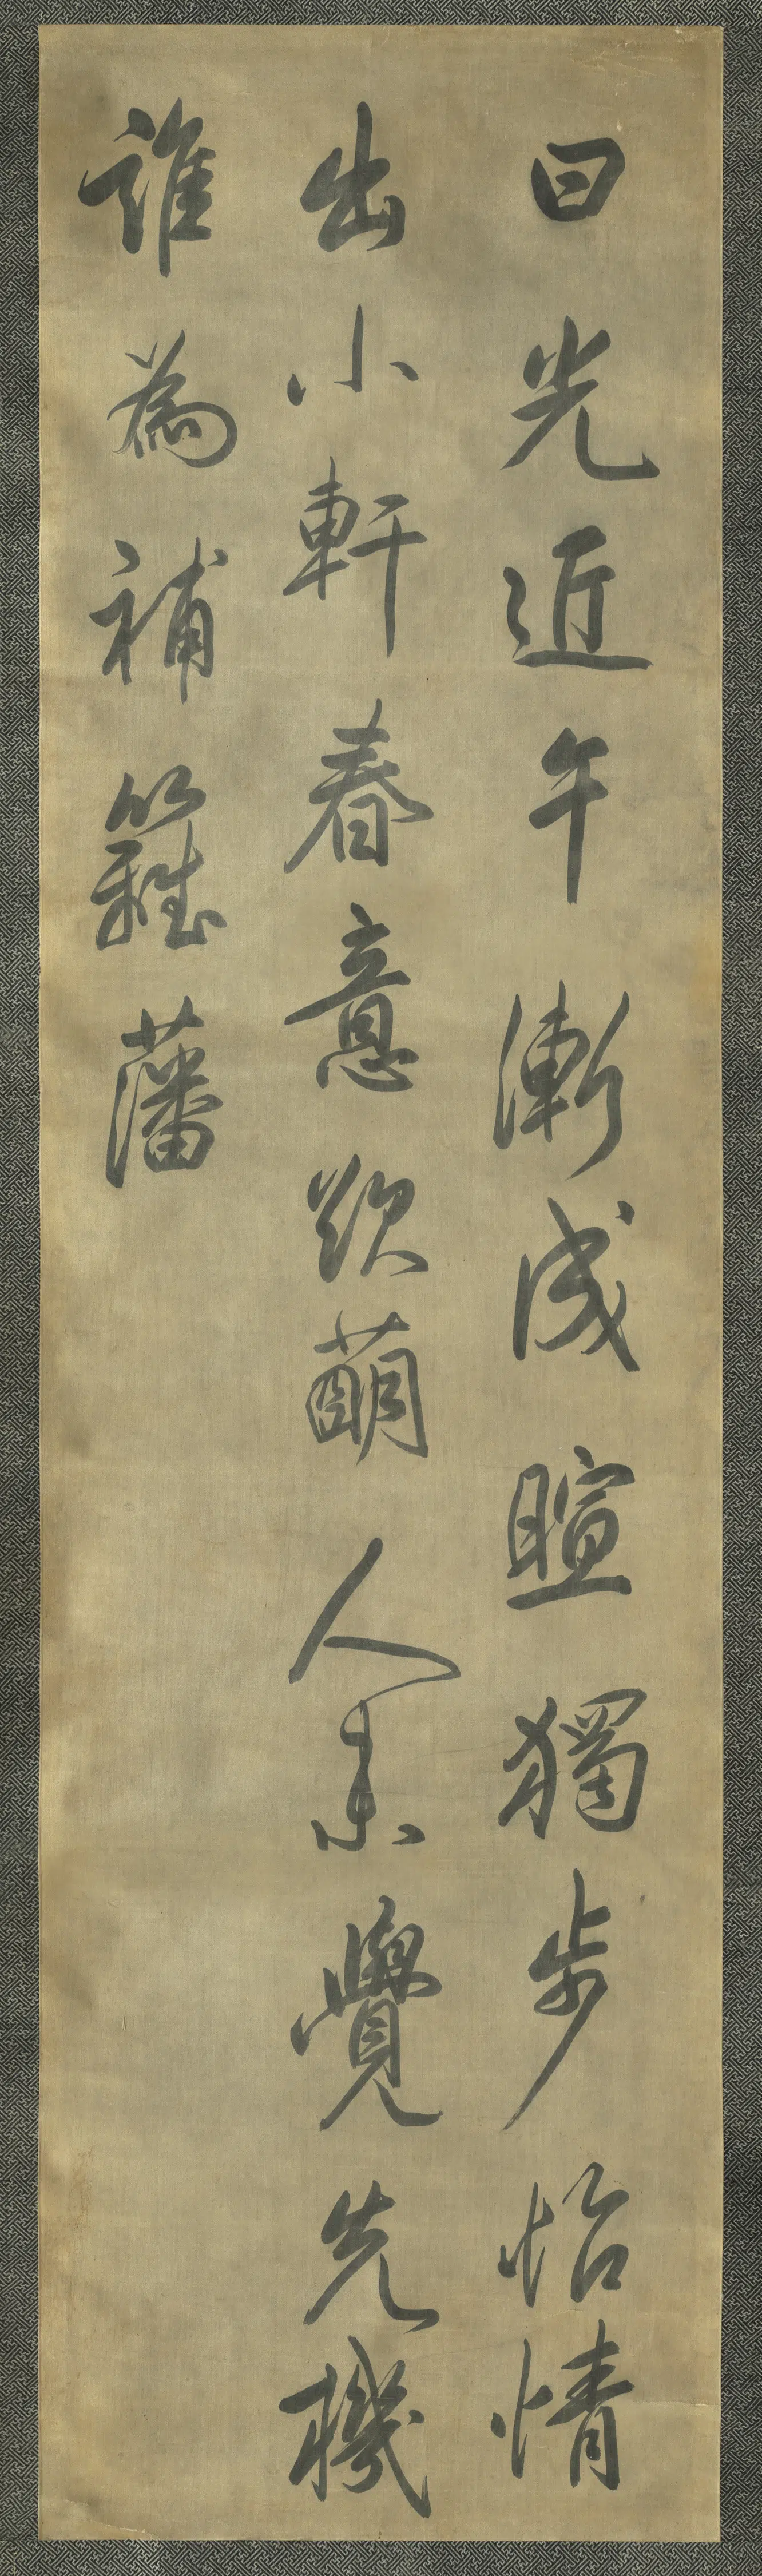 日光近午漸成暄獨步怡情
出小軒春意欲萌人未覺先機
誰為補籬藩